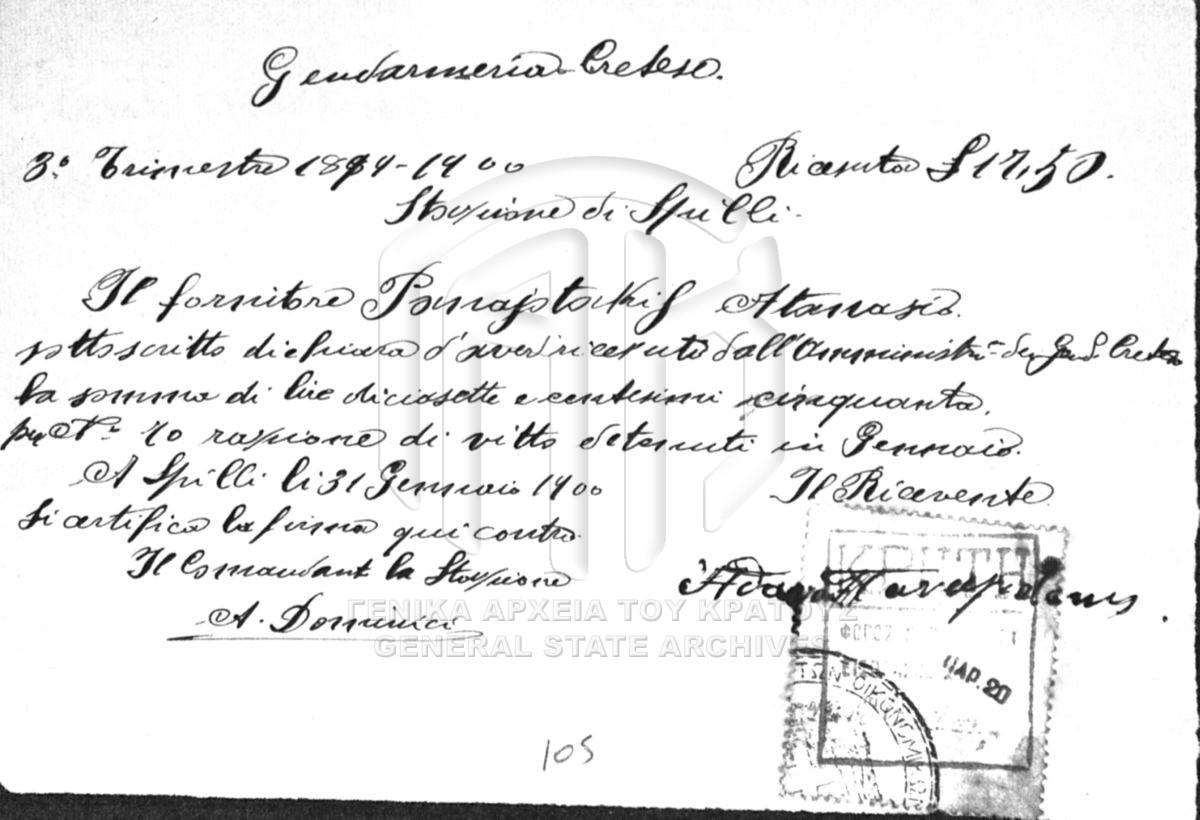 Gendarmeria Cretese.
3.° Trimestre 1899-1900 Ricevuta £ 17,50.
Stazione di Spilli.
Il fornitore Panajotakis Atanasio
sottoscritto dichiara d'aver ricevuto dall'Amministr.ne della Gend. Cretese
la somma di lire diciasette e centesimi cinquanta.
per N.° 70 razione di vitto detenuti in Gennaio.
A Spilli li 31 Gennaio 1900 Il Ricevente
Si certifica la firma qui contro
Il Comandant la Stazione
A. Dominici
ΚΡΗΤΗ
ΦΟΡΟΣ
ΠΑΡ. 20
ΟΙΚΟΝΟΜΙΚΩΝ
ΓΕΝΙΚΑ ΑΡΧΕΙΑ ΤΟΥ ΚΡΑΤΟΥΣ
GENERAL STATE ARCHIVES
105